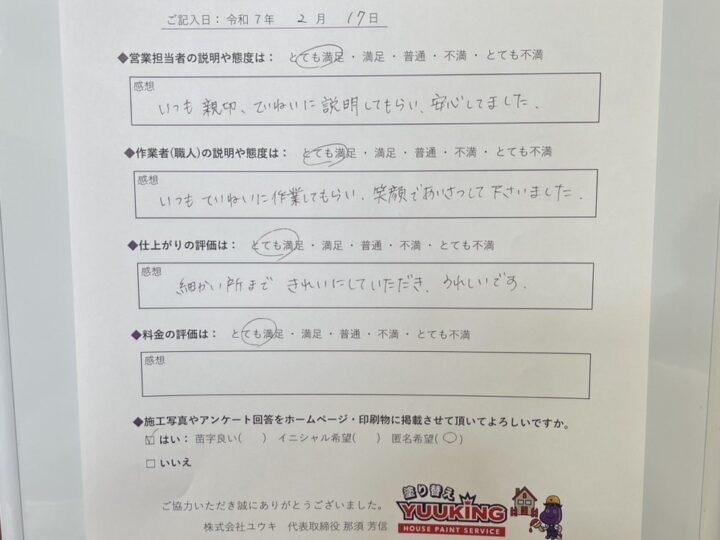 ご記入日：令和7年 2月 17日
◆営業担当者の説明や態度は： とても満足・満足・普通・不満・とても不満
感想
いつも親切、ていねいに説明してもらい、安心してました。
◆作業者(職人)の説明や態度は： とても満足・満足・普通・不満・とても不満
感想
いつもていねいに作業してもらい、笑顔であいさつして下さいました。
◆仕上がりの評価は： とても満足・満足・普通・不満・とても不満
感想
細かい所まできれいにしていただき、うれしいです。
◆料金の評価は： とても満足・満足・普通・不満・とても不満
感想
◆施工写真やアンケート回答をホームページ・印刷物に掲載させて頂いてよろしいですか。
☑はい：苗字良い(　) イニシャル希望(　) 匿名希望(○)
□いいえ
ご協力いただき誠にありがとうございました。
株式会社ユウキ 代表取締役 那須 芳信
塗り替え
YUUKING
HOUSE PAINT SERVICE